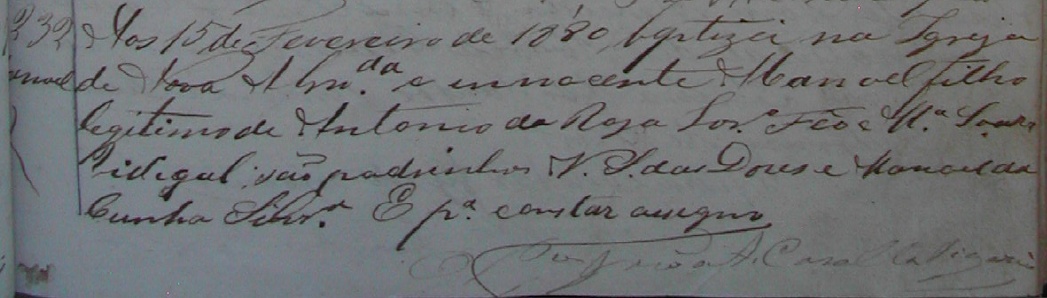 232 Aos 15 de Fevereiro de 1880, baptizei na Igreja
anoel de Nova Alm.da o innocente Manoel filho
legitimo de Antonio da Rosa Lor.º Fco e M.ª
Pidegal; são padrinhos N. S. das Dores e Manoel da
Cunha Silvr.ª E p.ª constar assigno
João A.